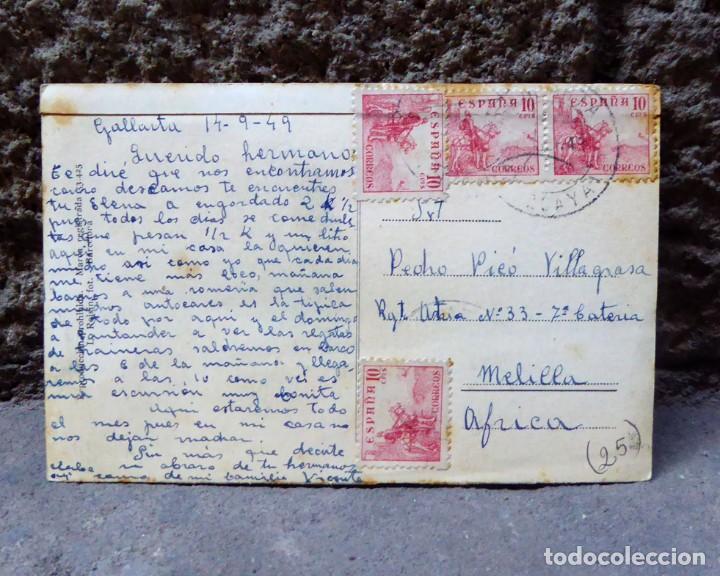 Gallarta 14-9-49
Querido hermano
Te diré que nos encontramos
como deseamos te encuentres
tu Elena a engordado 2 K 1/2
pues todos los dias se come dulces
tas que pesan 1/2 K y un litro
aqui en mi casa la quieren
mucho asi como yo que cada dia
me tiene más loco, mañana
bamos a una romeria que salen
muchos autocares es la típica
de todo por aqui y el domingo
a Santander a ver las regatas
de traineras saldremos en barco
a las 6 de la mañana y llega
a las 10 como ves es
muy excursión muy bonita
Aqui estaremos todo
el mes pues en mi casa no
nos dejan machar.
Sin más que decirte
un abrazo de tu hermano
como de mi familia Vicente
Reproducción prohibida Marca registrada
fot. Barcelona
ESPAÑA 10
CTS
CORREOS
ESPAÑA 10
CTS
CORREOS
ESPAÑA 10
CORREOS
ESPAÑA 10
CTS
CORREOS
Pedro Picó Villagrasa
Rgt. Nº 33 - 7ª Bateria
Melilla
Africa
(25)
todocoleccion.net